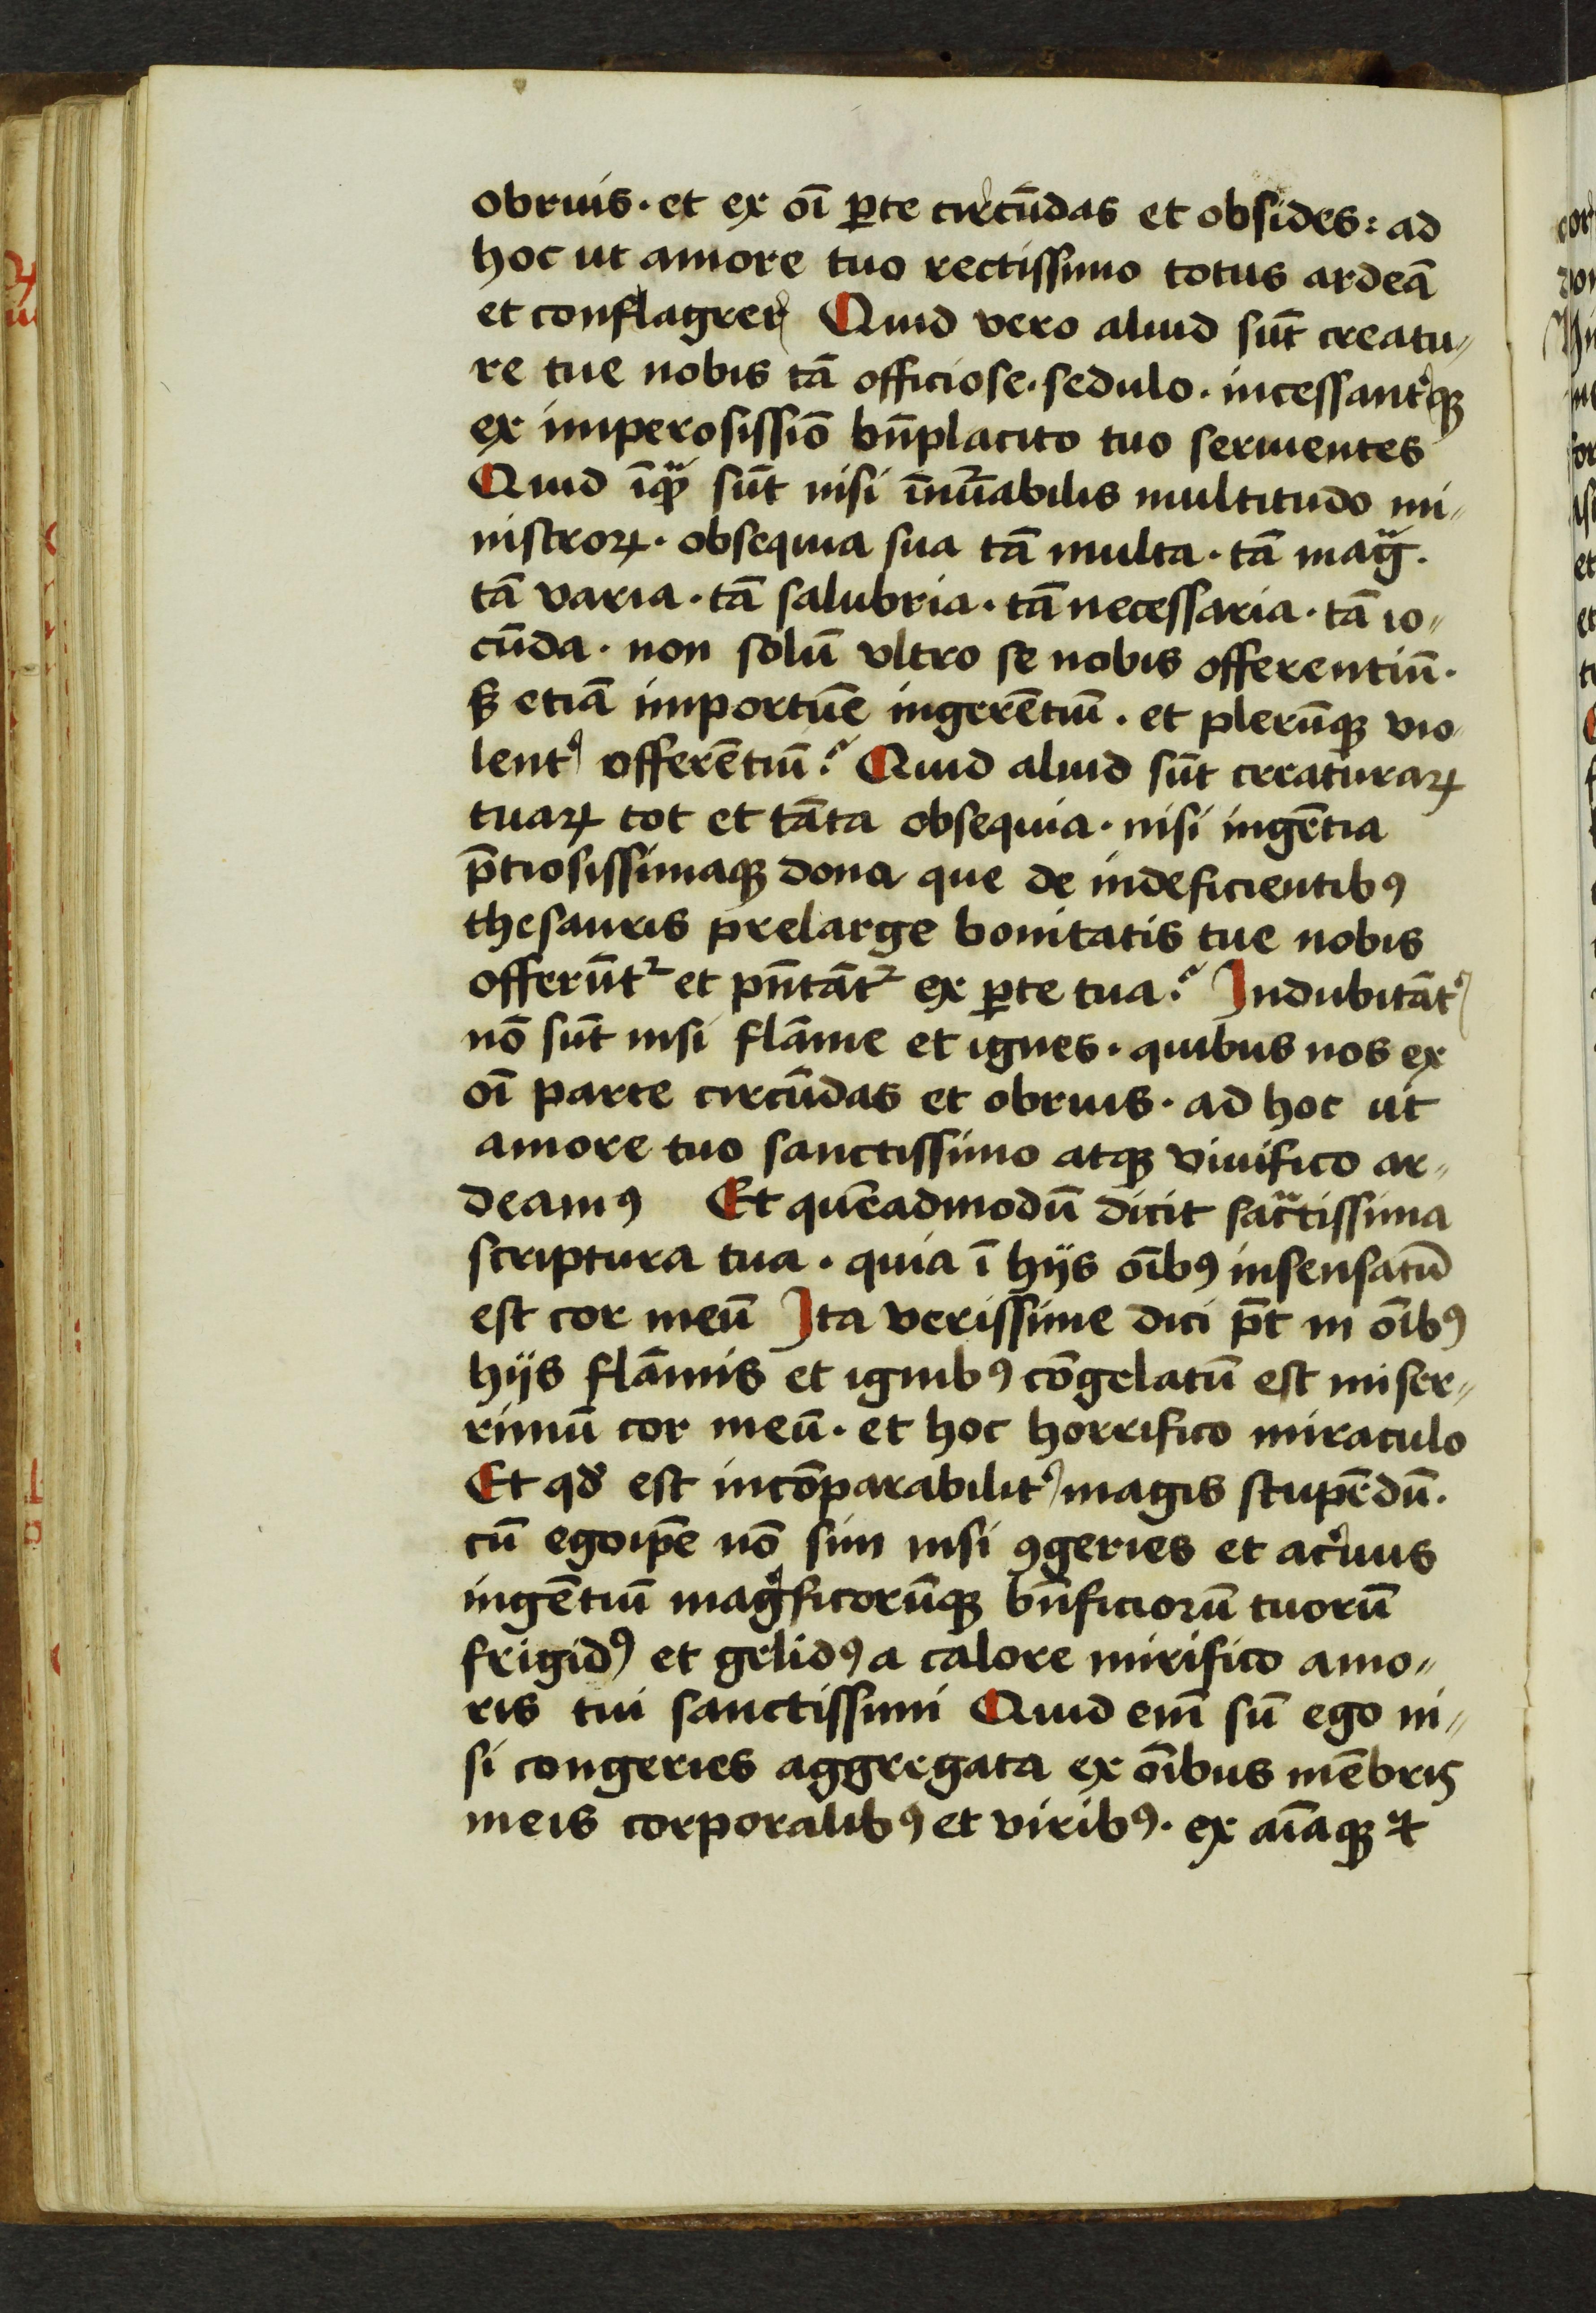 obruis · et ex oī ꝑte circūdas et obsides : ad
hoc ut amore tuo rectissimo totus ardeā
et conflagrer Quid vero aliud sūt creatu〃
re tue nobis tā officiose · sedulo · incessantꝰqꝫ
ex imperosissiō bn̄placito tuo seruientes
Quid īqͣꝫ sūt nisi īnūabilis multitudo mi〃
nistroꝝ · obsequia sua tā multa · tā magͣ ·
tā varia · tā salubria · tā necessaria · tā io〃
cūda · non solū vltro se nobis offerentiū ·
sꝫ etiā importūe ingerētiū · et plerūqꝫ vio
lentꝰ offerētiū ? Quid aliud sūt creaturaꝝ
tuaꝝ tot et tāta obsequia · nisi ingētia
p̄tiosissimaqꝫ dona que de indeficientibꝰ
thesauris prelarge bonitatis tue nobis
offerūtᷣ et pn̄tātᷣ ex ꝑte tua ? Indubitātꝰ
nō sūt nisi flāme et ignes · quibus nos ex
oī parte circūdas et obruis · ad hoc ut
amore tuo sanctissimo atqꝫ viuifico ar〃
deamꝰ Et quēadmodū dicit sacͣtissima
scriptura tua · quia ī hijs oībꝰ insensatū
est cor meū Ita verissime dici p̄t in oībꝰ
hijs flāmis et ignibꝰ cōgelatū est miser〃
rimū cor meū · et hoc horrifico miraculo
Et qd̛ est incōparabilitꝰ magis stupēdū ·
cū egoip̄e nō sim nisi ꝯgeries et acꝰuus
ingētiū magͥficorūqꝫ bn̄ficiorū tuorū
frigidꝰ et gelidꝰ a calore mirifico amo〃
ris tui sanctissimi Quid eni̅ sū ego ni〃
si congeries aggregata ex oībus mēbris
meis corporalibꝰ et viribꝰ · ex aīaqꝫ et